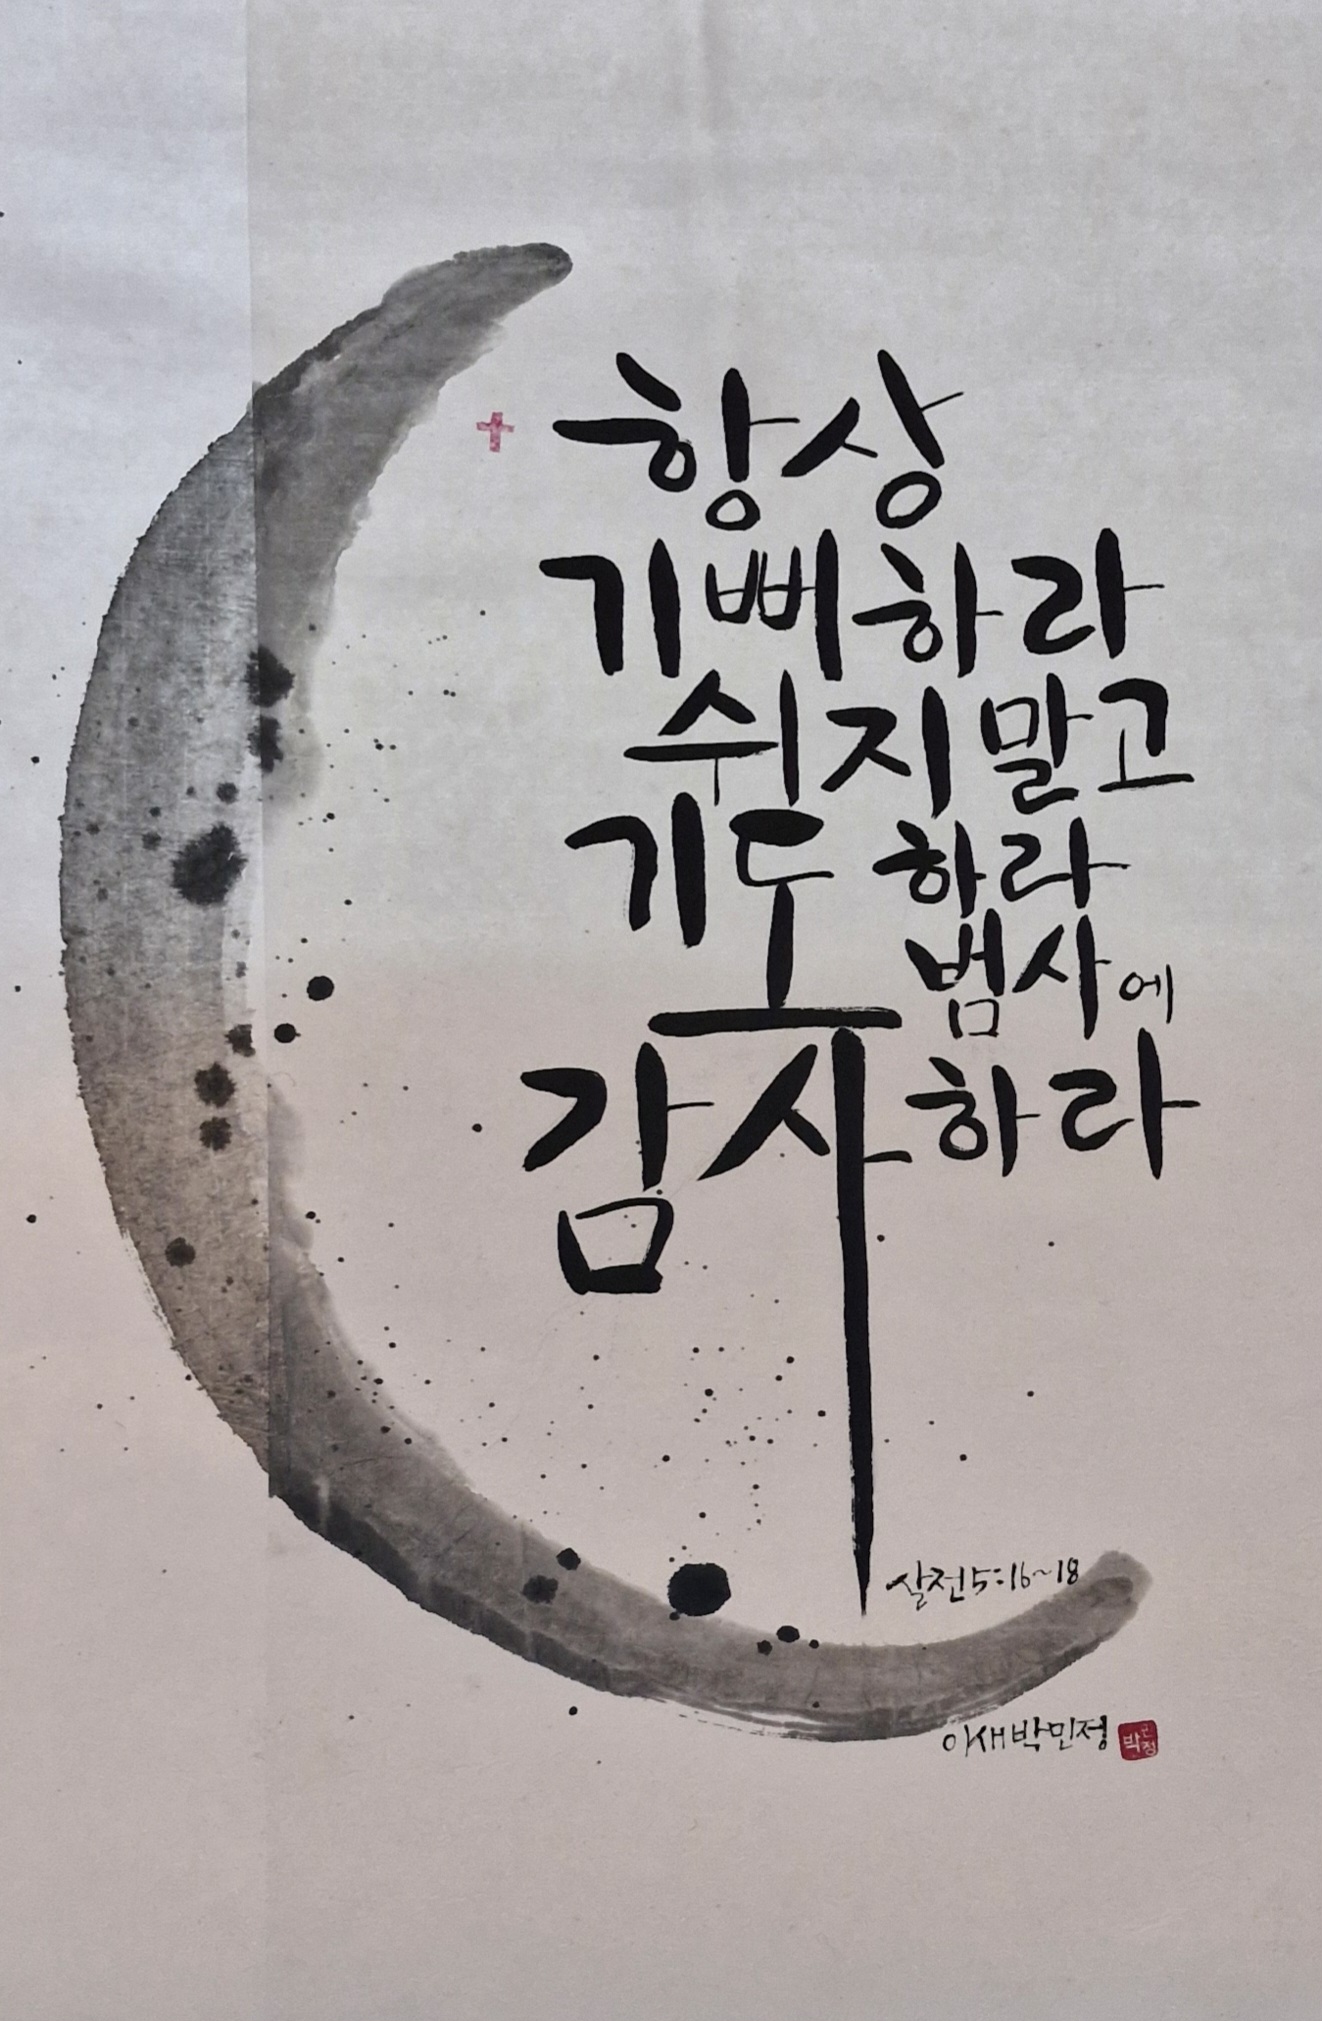 항상
기뻐하라
쉬지말고
기도 하라
범사에
감사하라
살전5:16~18
이새박민정